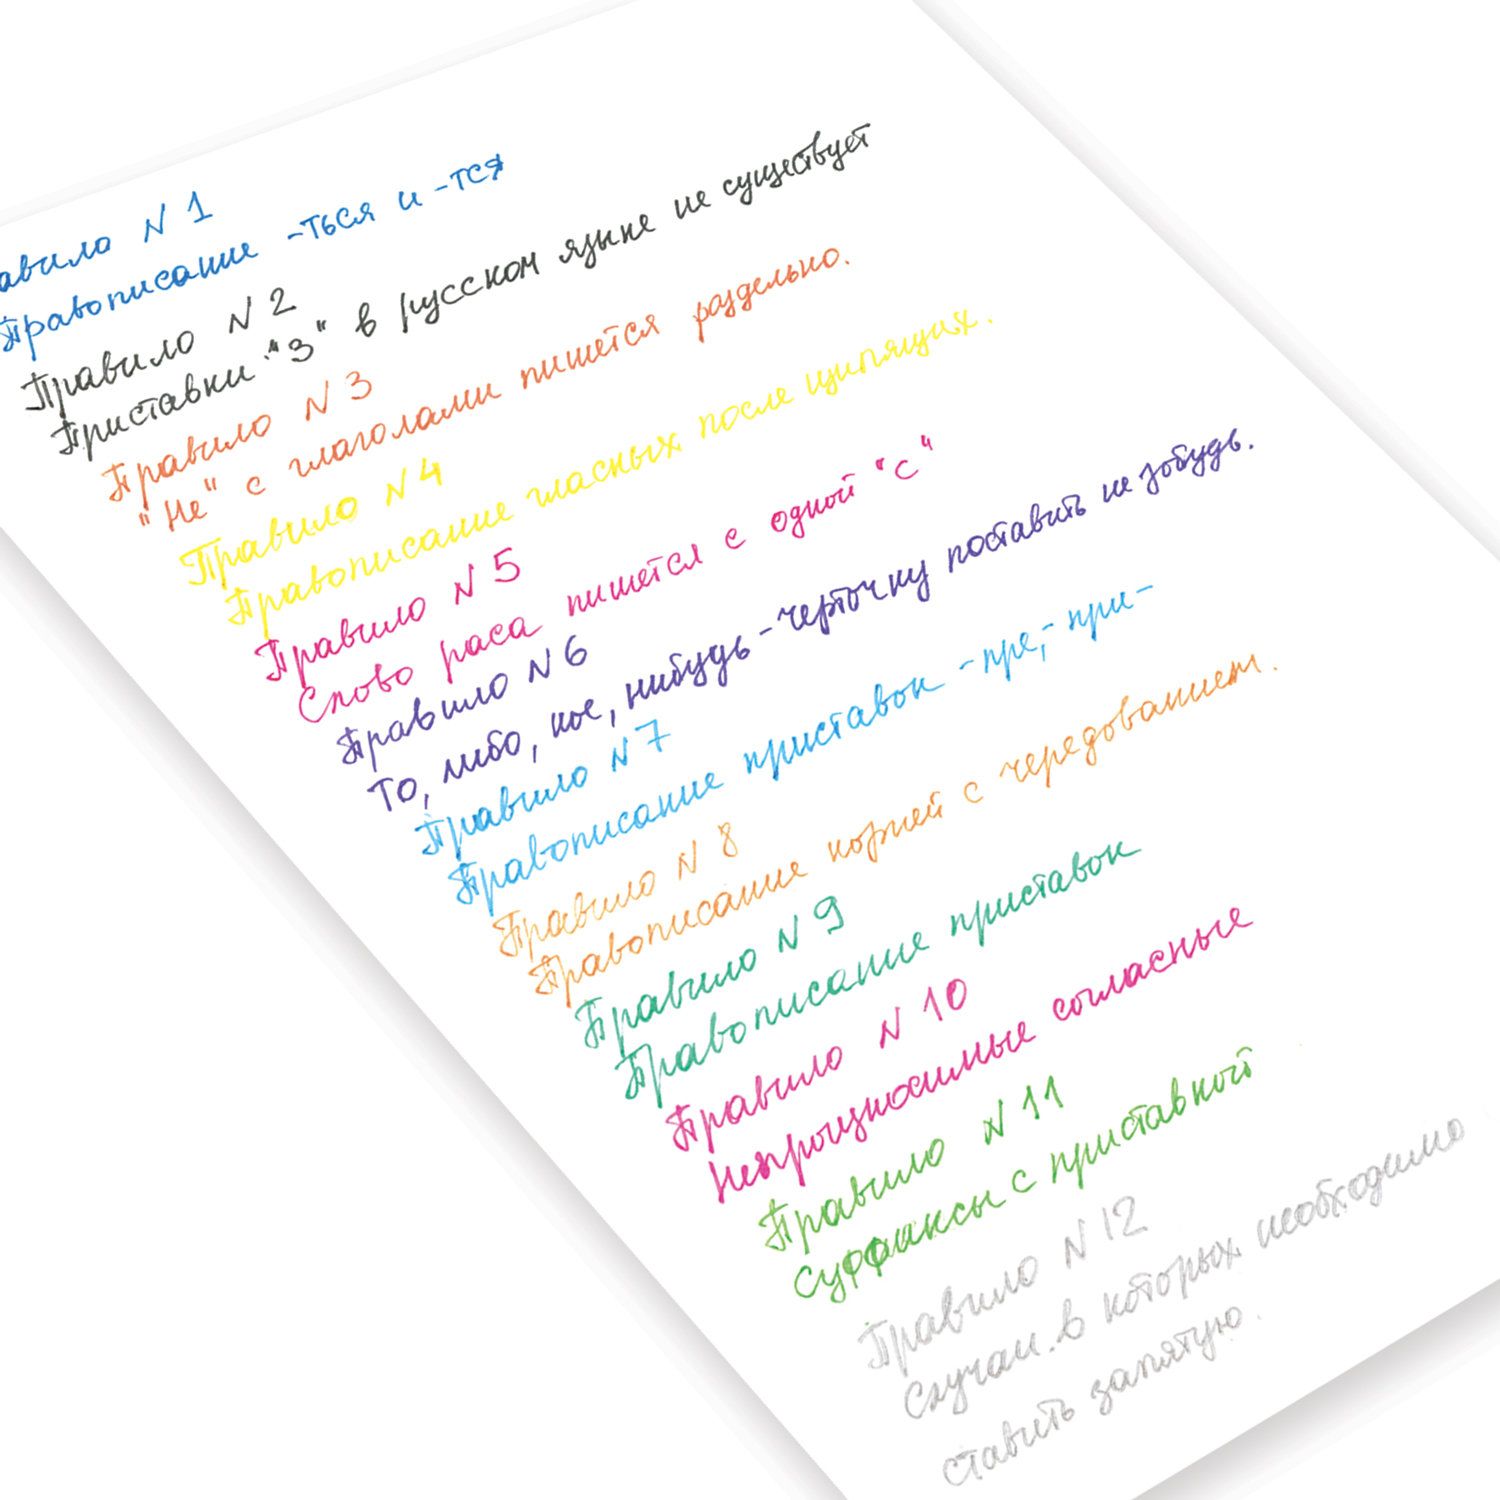 авило N 1
Правописание -ться и -тся
Правило N 2
Приставки "З" в русском языке не существует
Правило N 3
"Не" с глаголами пишется раздельно.
Правило N 4
Правописание гласных после щипящих.
Правило N 5
Слово раса пишется с одной "с"
Правило N 6
То, либо, кое, нибудь - черточку поставить не зобудь.
Правило N 7
Правописание приставок -пре,- при-
Правило N 8
Правописание корней с чередованием.
Правило N 9
Правописание приставок
Правило N 10
Непроизносимые согласные
Правило N 11
Суффиксы с приставкой
Правило N 12
Случаи в которых необходимо
ставить запятую.